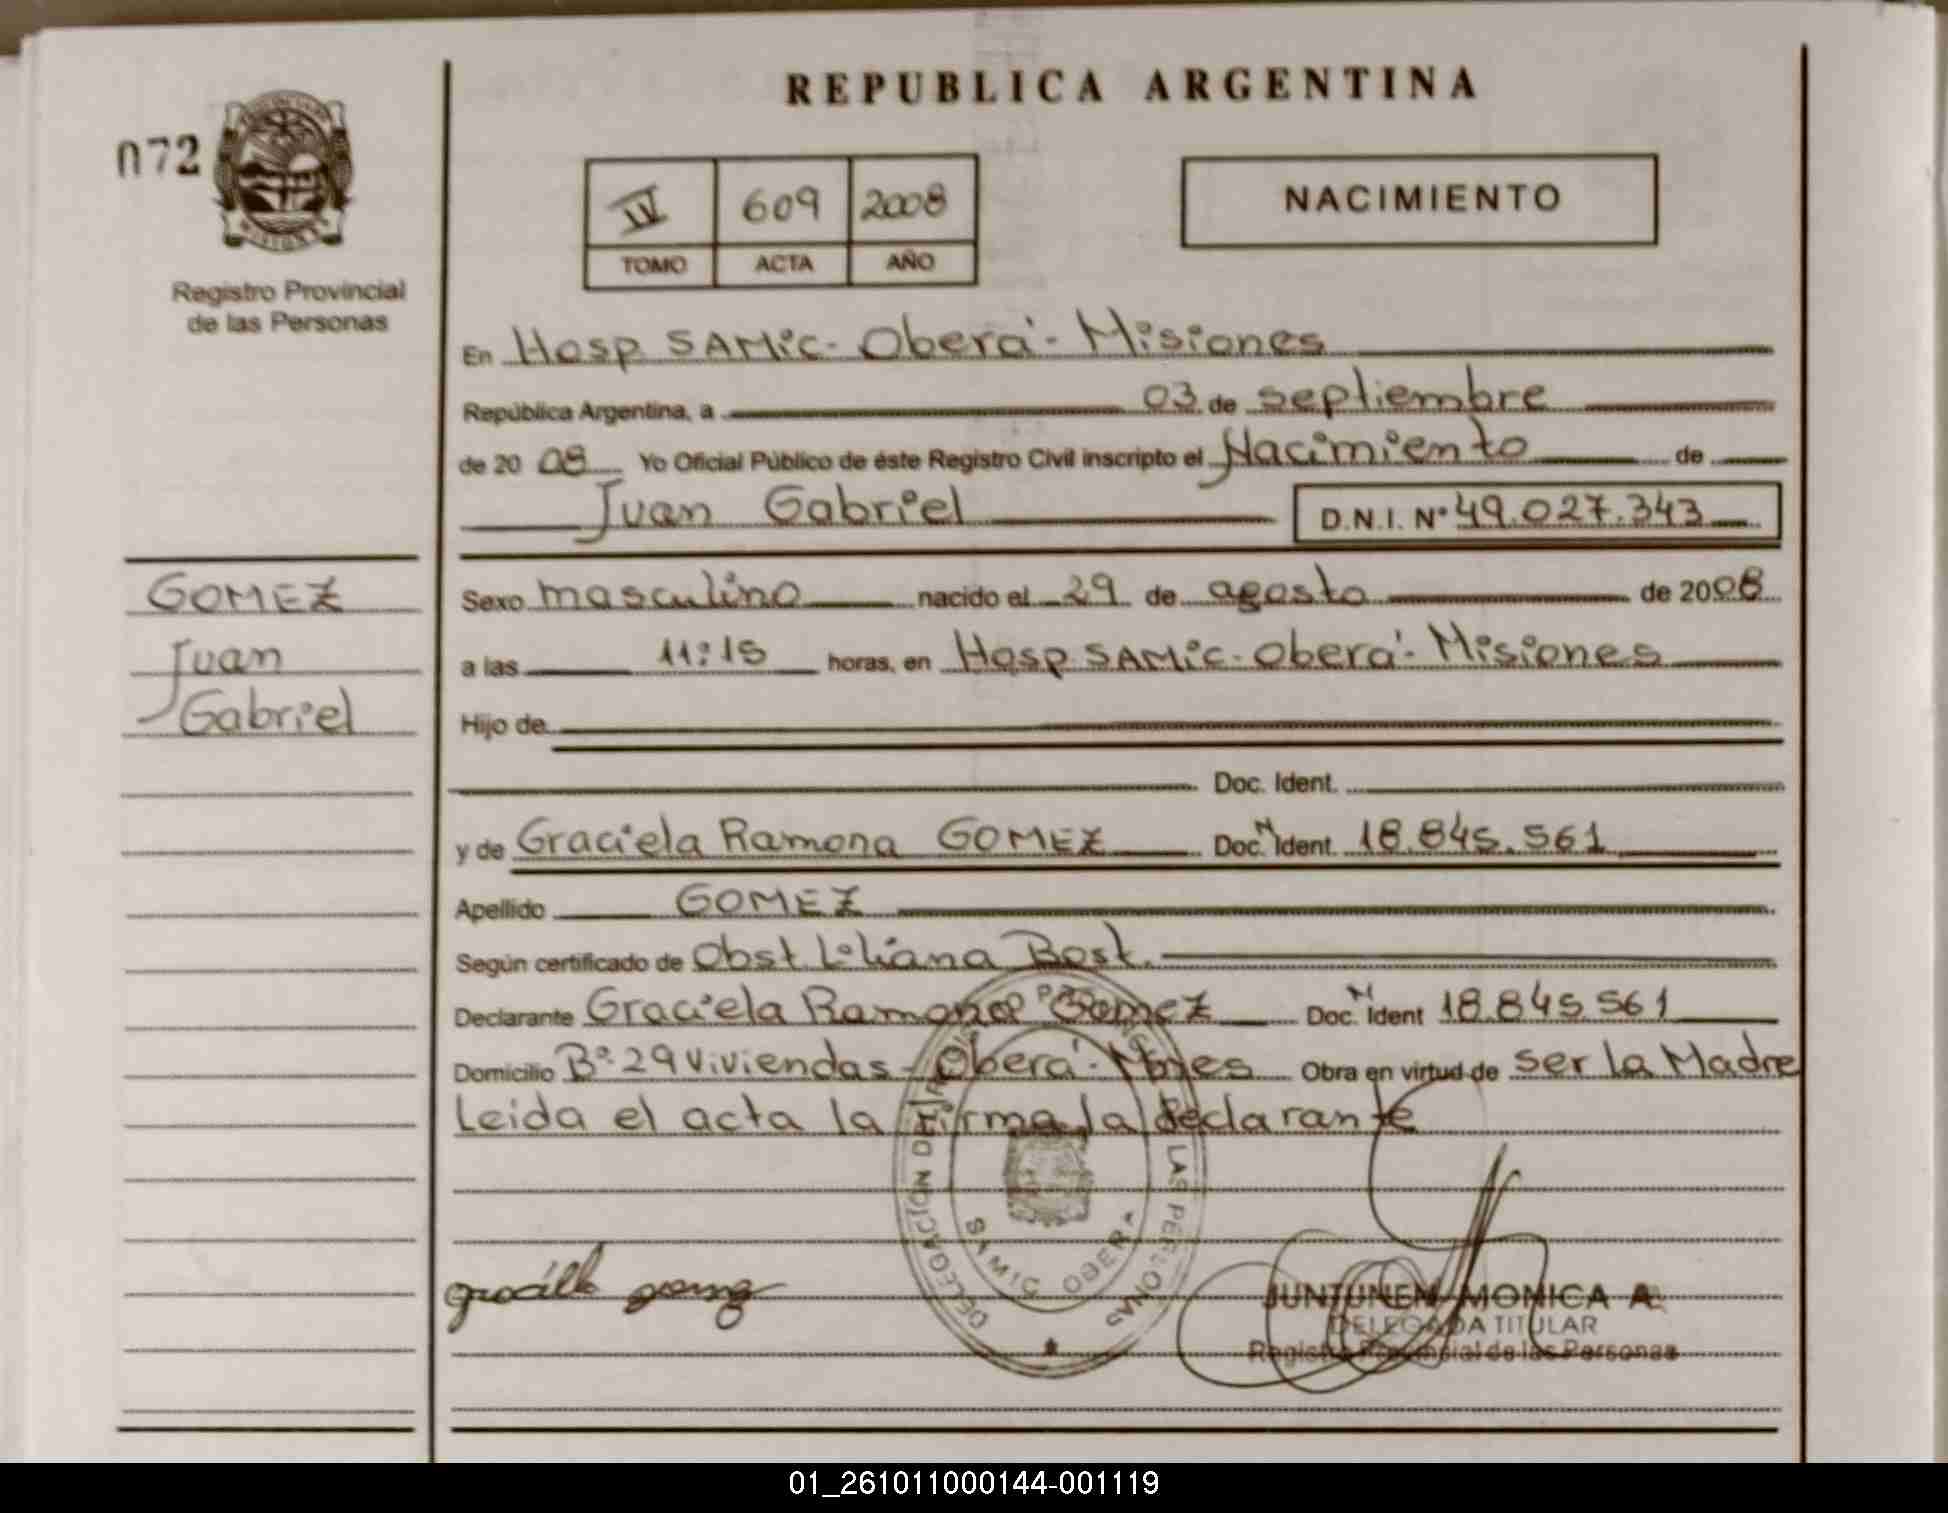 REPUBLICA ARGENTINA
072
MISIONES
Registro Provincial
de las Personas
IV 609 2008
TOMO ACTA AÑO
NACIMIENTO
En Hosp SAMic - Oberá - Misiones
República Argentina, a 03 de septiembre
de 20 08 Yo Oficial Público de éste Registro Civil inscripto el Nacimiento de
Juan Gabriel D.N.I. Nº 49.027.343
GOMEZ
Juan
Gabriel
Sexo masculino nacido el 29 de agosto de 2008
a las 11:15 horas, en Hosp SAMic - Oberá - Misiones
Hijo de
Doc. Ident.
y de Graciela Ramona GOMEZ Doc. N Ident 18.845.561
Apellido GOMEZ
Según certificado de Obst Liliana Bost.
Declarante Graciela Ramona Gomez Doc. N Ident 18.845.561
Domicilio Bº 29 viviendas - Oberá - Mnes Obra en virtud de ser la Madre
Leida el acta la firma la declarante
DELEGACIÓN DEL LAS PERSONAS
SAMIC OBERA
JUNTUNEN MONICA A.
DELEGADA TITULAR
Registro Provincial de las Personas
01_261011000144-001119